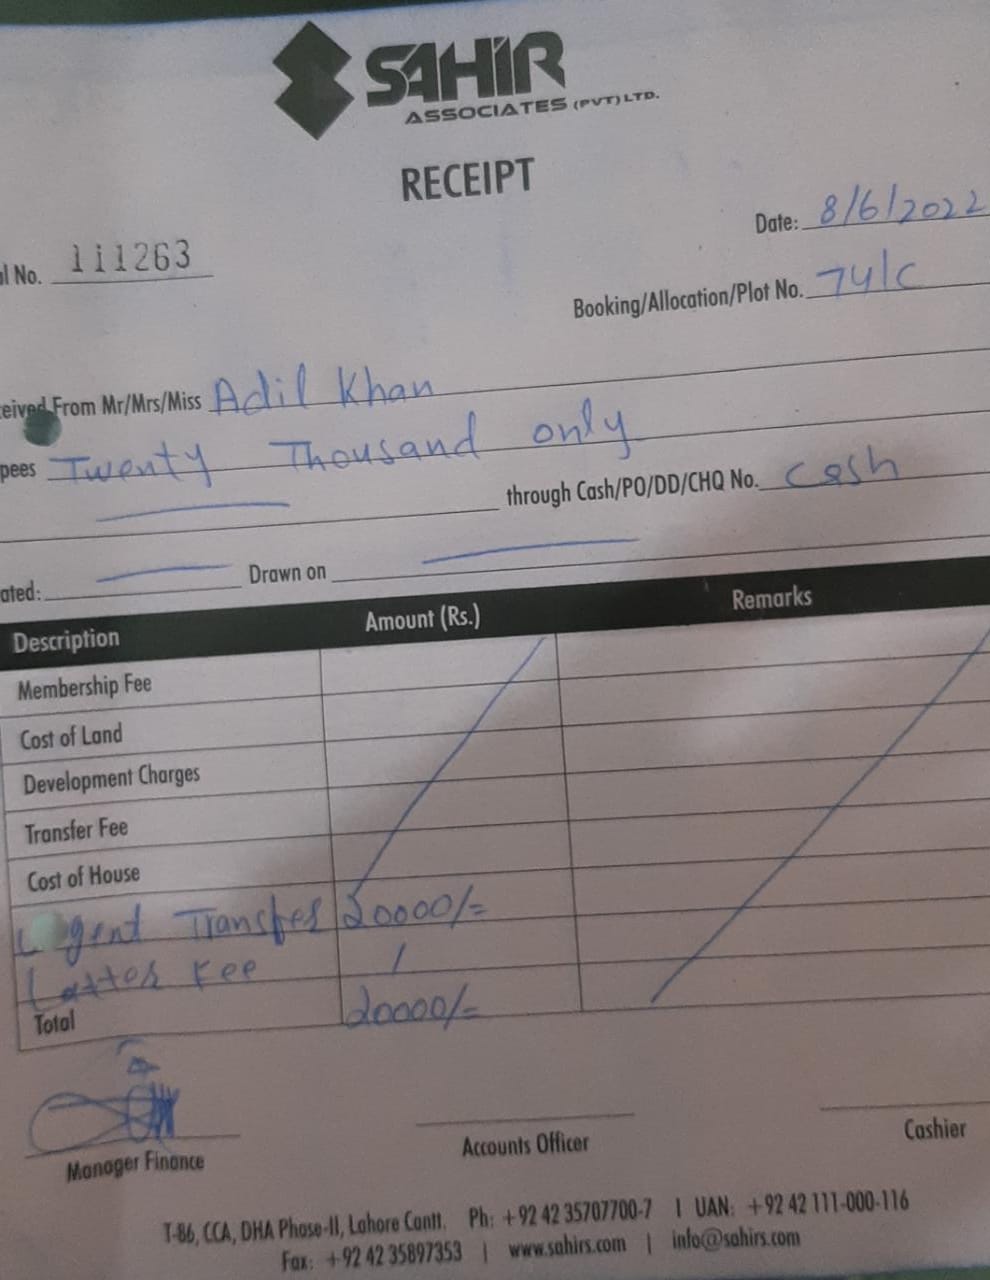 SAHIR
ASSOCIATES (PVT) LTD.
RECEIPT
Date: 8/6/2022
l No. 111263
Booking/Allocation/Plot No. 74/C
eived From Mr/Mrs/Miss Adil Khan
pees Twenty Thousand only
through Cash/PO/DD/CHQ No. Cash
ated: Drawn on
Description Amount (Rs.) Remarks
Membership Fee
Cost of Land
Development Charges
Transfer Fee
Cost of House
gent Transfer 20000/=
Latter Fee /
Total 20000/=
Manager Finance Accounts Officer Cashier
T-86, CCA, DHA Phase-II, Lahore Cantt. Ph: +92 42 35707700-7 | UAN: +92 42 111-000-116
Fax: +92 42 35897353 | www.sahirs.com | info@sahirs.com